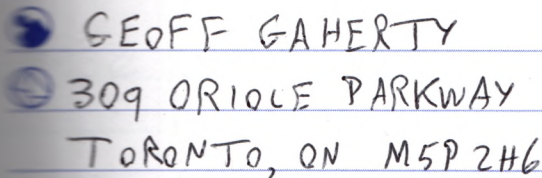 GEOFF GAHERTY
309 ORIOLE PARKWAY
TORONTO, ON M5P 2H6